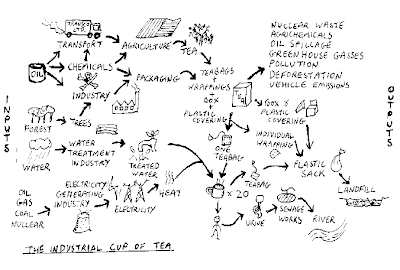 TRANSPORT
AGRICULTURE
TEA
OIL
CHEMICALS
PACKAGING
INDUSTRY
TEABAGS
+
WRAPPINGS
+
BOX
+
PLASTIC
COVERING
NUCLEAR WASTE
AGRICHEMICALS
OIL SPILLAGE
GREENHOUSE GASSES
POLLUTION
DEFORESTATION
VEHICLE EMISSIONS
INPUTS
OUTPUTS
FOREST
TREES
BOX &
PLASTIC
COVERING
ONE
TEABAG
INDIVIDUAL
WRAPPING
WATER
WATER
TREATMENT
INDUSTRY
TREATED
WATER
PLASTIC
SACK
TEABAG
OIL
GAS
COAL
NUCLEAR
ELECTRICITY
GENERATING
INDUSTRY
ELECTRICITY
HEAT
x 20
LANDFILL
URINE
SEWAGE
WORKS
RIVER
THE INDUSTRIAL CUP OF TEA